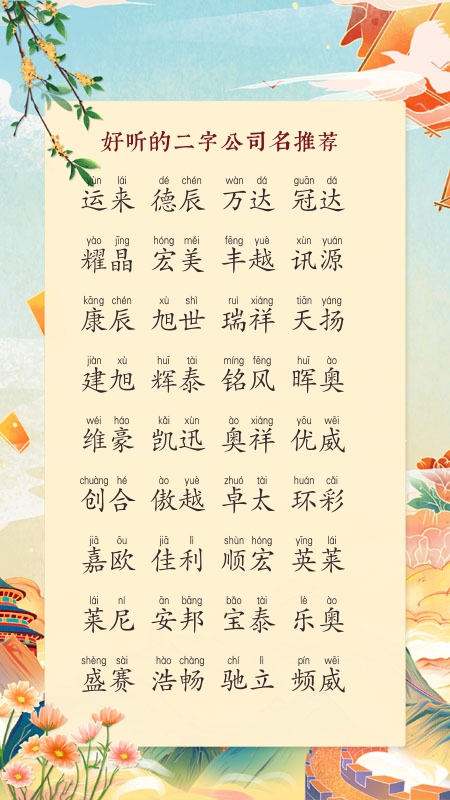 好听的二字公司名推荐
yùn lái dé chén wàn dá guān dá
运来 德辰 万达 冠达
yào jīng hóng měi fēng yuè xùn yuán
耀晶 宏美 丰越 讯源
kāng chén xù shì ruì xiáng tiān yáng
康辰 旭世 瑞祥 天扬
jiàn xù huī tài míng fēng huī ào
建旭 辉泰 铭风 晖奥
wéi háo kǎi xùn ào xiáng yōu wēi
维豪 凯迅 奥祥 优威
chuàng hé ào yuè zhuó tài huán cǎi
创合 傲越 卓太 环彩
jiā ōu jiā lì shùn hóng yīng lái
嘉欧 佳利 顺宏 英莱
lái ní ān bāng bǎo tài lè ào
莱尼 安邦 宝泰 乐奥
shèng sài hào chàng chí lì pín wēi
盛赛 浩畅 驰立 频威